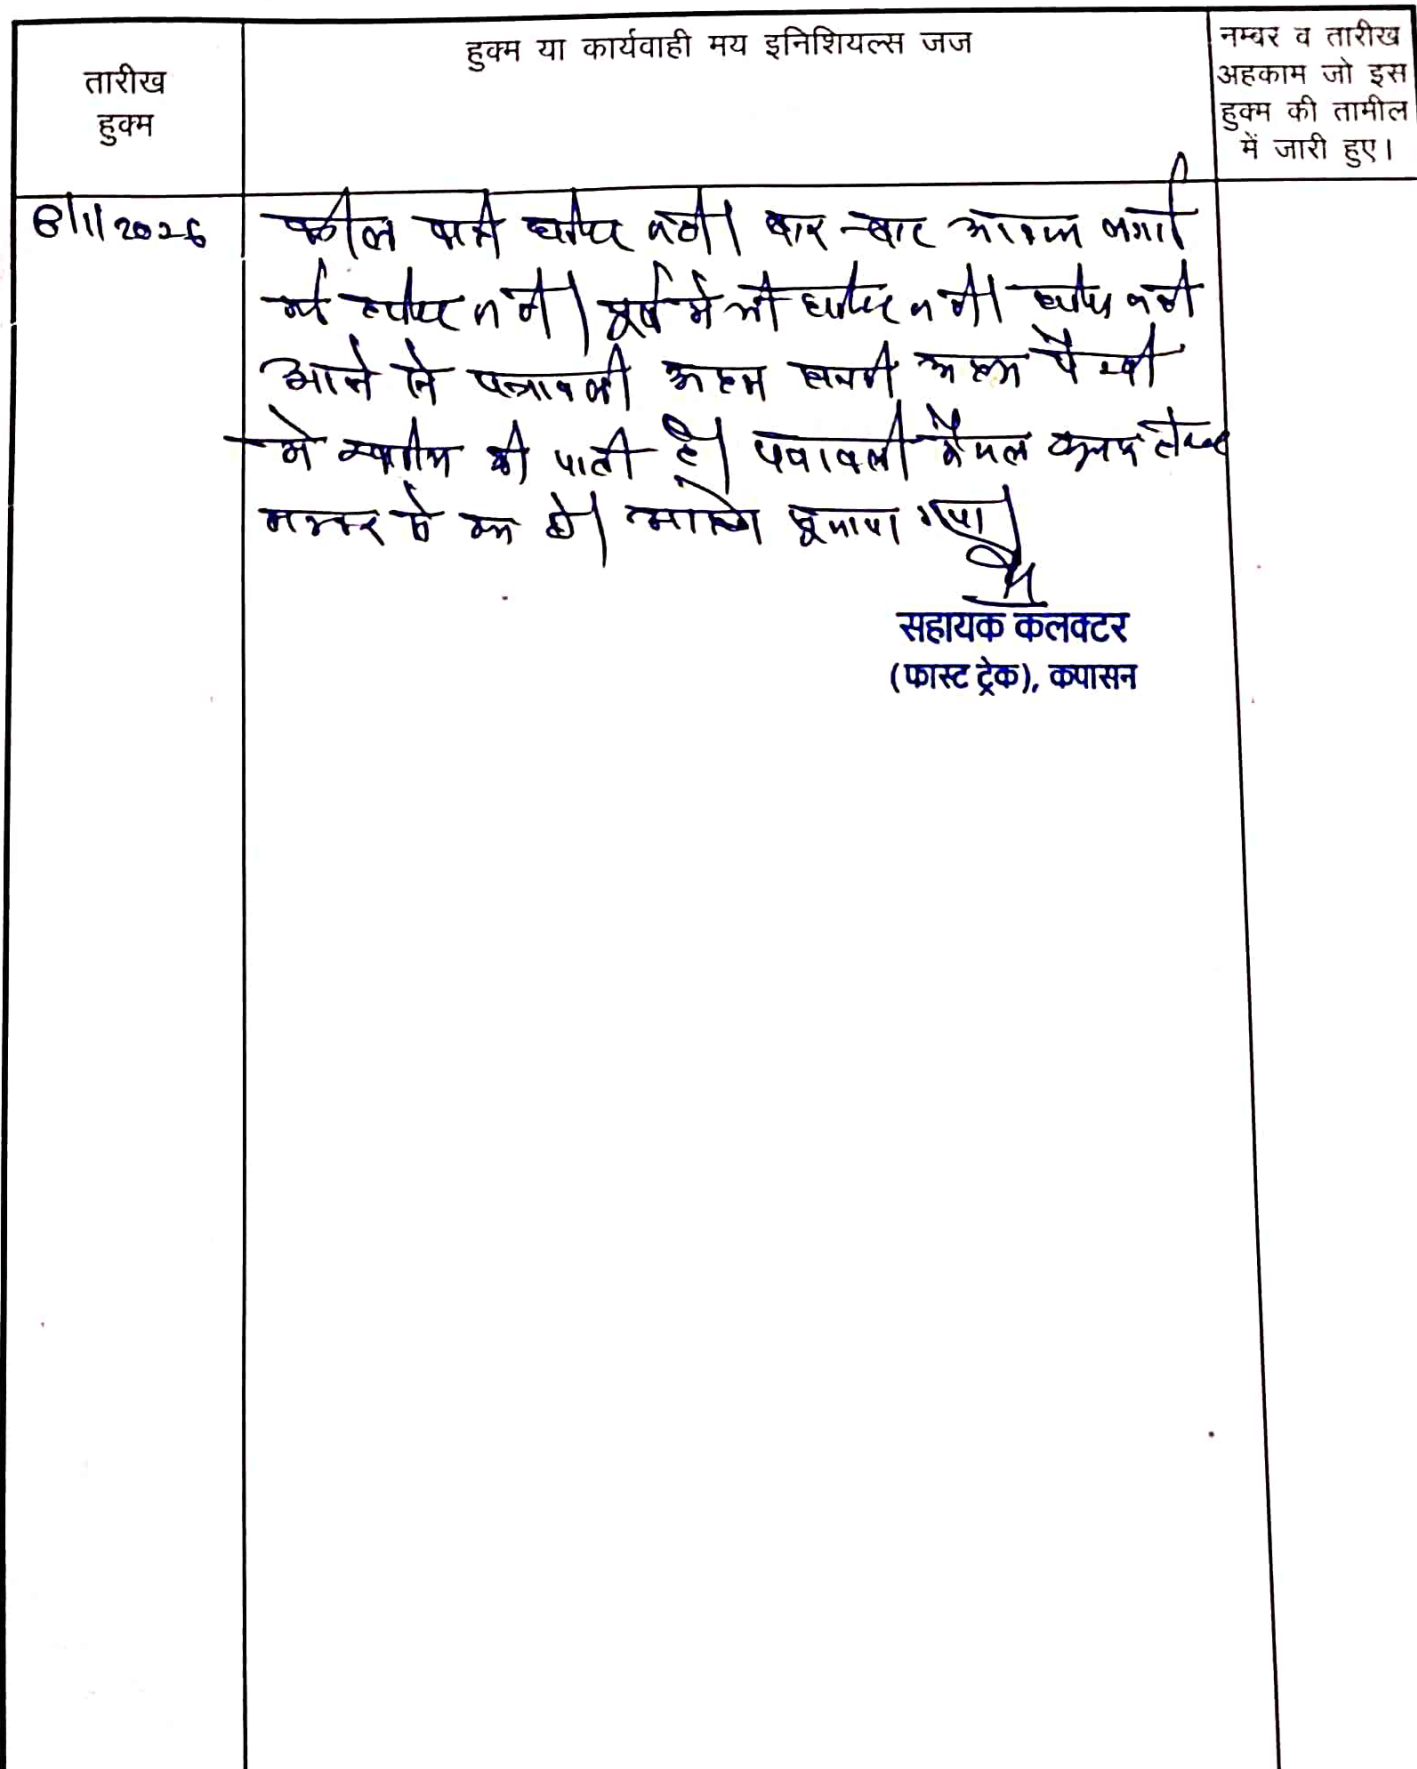 तारीख
हुक्म
हुक्म या कार्यवाही मय इनिशियल्स जज
नम्बर व तारीख
अहकाम जो इस
हुक्म की तामील
में जारी हुए।
8/1/2026
वकील वादी हाजीर नही। बार-बार आवाज लगाई
गई हाजीर नही। पूर्व मे भी हाजीर नही। हाजीर नही
आने से पत्रावली अदम हाजरी अदम पैरवी
मे खारीज की जाती है। पत्रावली फैसल शुमार होकर
नम्बर से कम हो। आदेश सुनाया गया।
सहायक कलक्टर
(फास्ट ट्रेक), कपासन